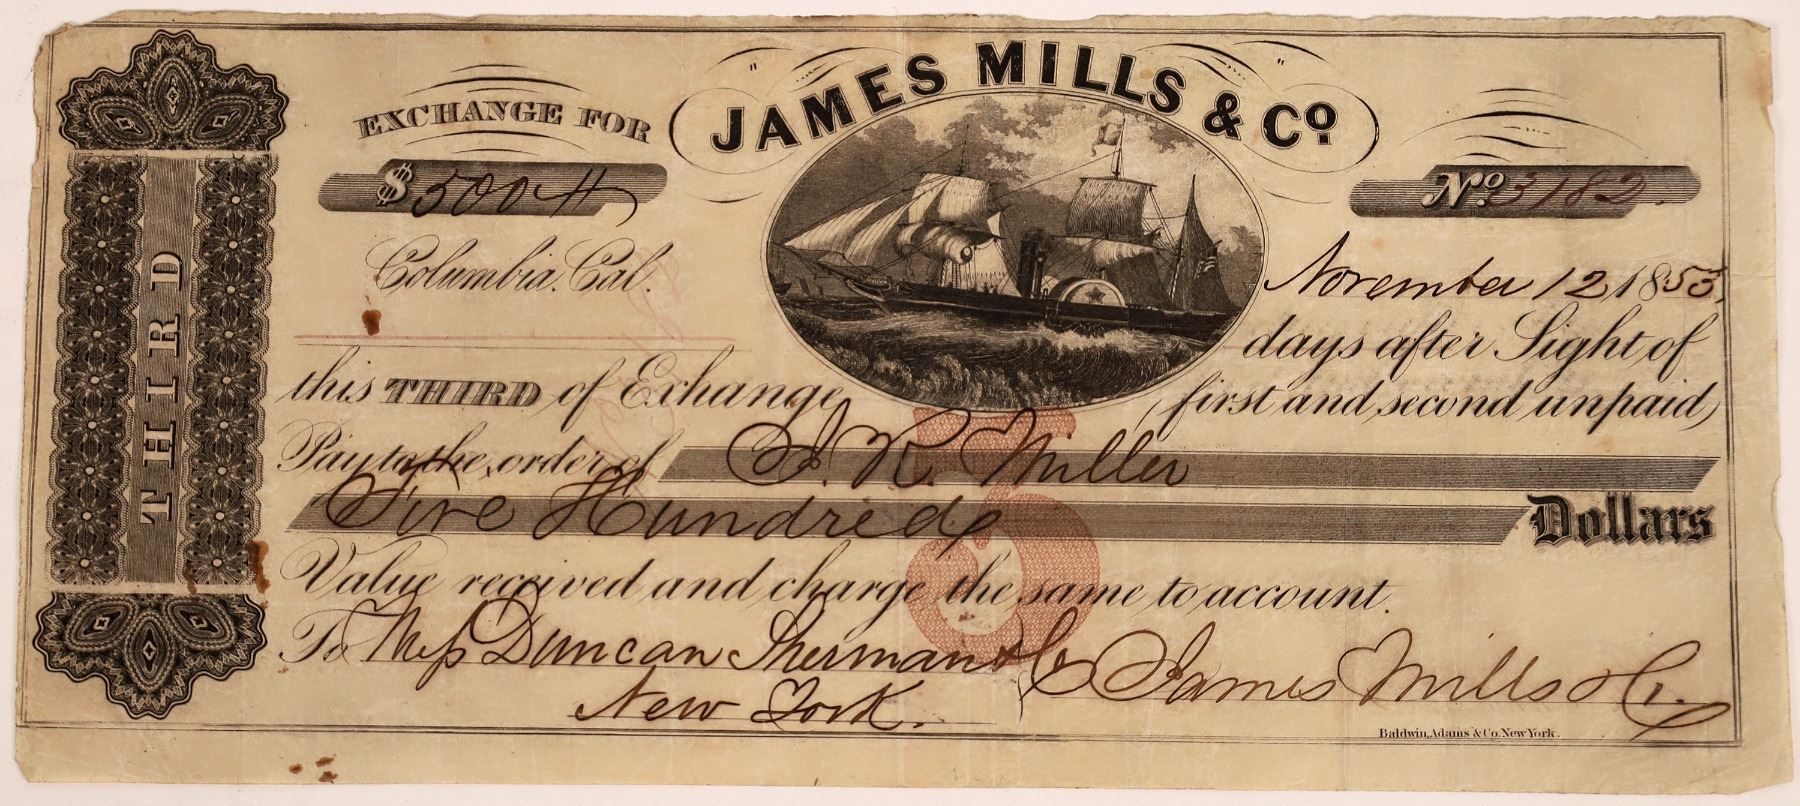 JAMES MILLS & Co.
EXCHANGE FOR
$ 500
No. 3182.
Columbia, Cal.
November 12 1853.
days after Sight of
this THIRD of Exhange
(first and second unpaid)
Pay to the order of J. R. Miller
Five Hundred Dollars
Value received and charge the same to account.
To Mess Duncan Sherman & Co
New York.
James Mills & Co.
Baldwin, Adams & Co. New York.
THIRD